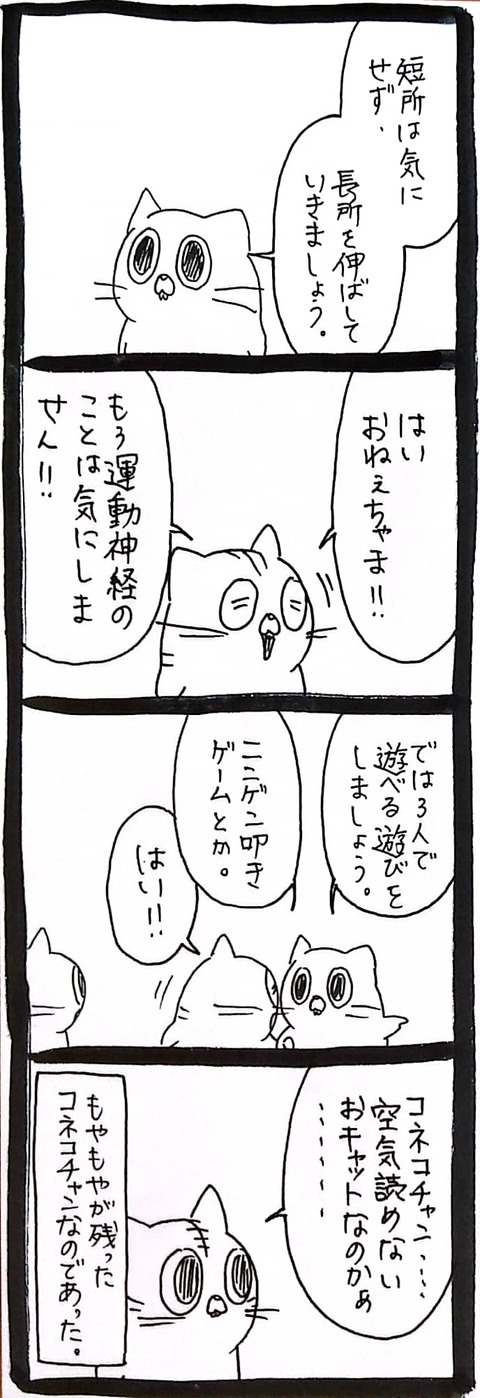 短所は気に
せず、
長所を伸ばして
いきましょう。
はい
おねぇちゃま!!
もう運動神経の
ことは気にしま
せん!!
では3人で
遊べる遊びを
しましょう。
ニンゲン叩き
ゲームとか。
はい!!
コネコチャン……
空気読めない
おキャットなのかぁ
……
もやもやが残った
コネコチャンなのであった。